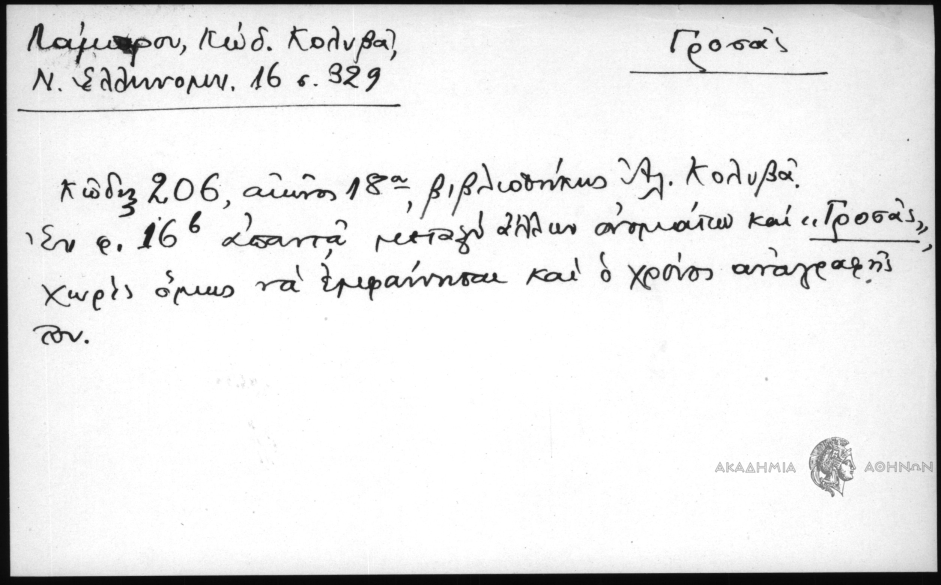 Λάμπρου, Κώδ. Κολυβᾶ,
Ν. Ἑλληνομν. 16 σ. 329
Γροσᾶς
Κῶδιξ 206, αἰῶνος 18ου, βιβλιοθήκης Ἀλ. Κολυβᾶ.
Ἐν φ. 16β ἀπαντᾷ μεταξὺ ἄλλων ὀνομάτων καὶ «Γροσᾶς»,
χωρὶς ὅμως νὰ ἐμφαίνηται καὶ ὁ χρόνος ἀναγραφῆς
του.
ΑΚΑΔΗΜΙΑ ΑΘΗΝΩΝ